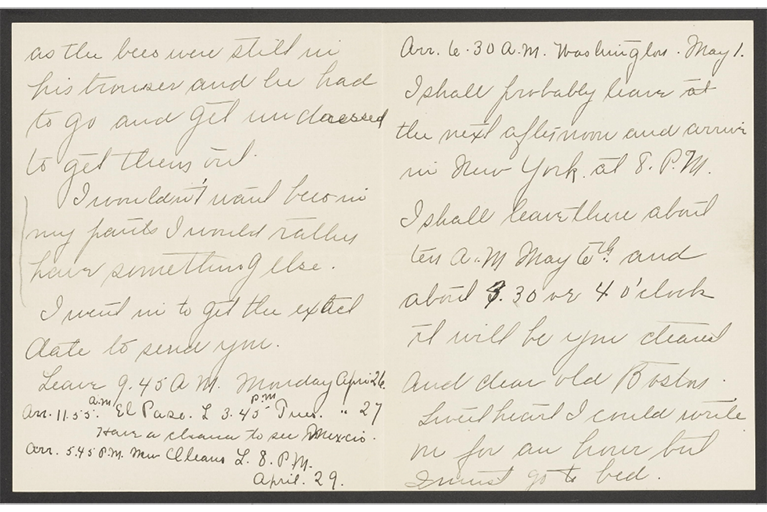 as the bees were still in
his trouser and he had
to go and get undressed
to get them out.
I wouldn't want bees in
my pants I would rather
have something else.
I went in to get the extct
date to send you.
Leave 9.45 A M. Monday April 26.
Arr. 11.55 a.m. El Paso. L 3.45 p.m. Tues. " 27
Have a chance to see Mexcio.
Arr. 5.45 P.M. New Orleans L. 8. P.M.
April. 29.
Arr. 6.30 A.M. Washington. May 1.
I shall probably leave at
the next afternoon and arrive
in New York. at 8. P.M.
I shall leave there about
ten A.M May 6th. and
about 3.30 or 4 o'clock
it will be you dearest
and dear old Boston.
Sweetheart I could write
on for an hour but
I must go to bed.